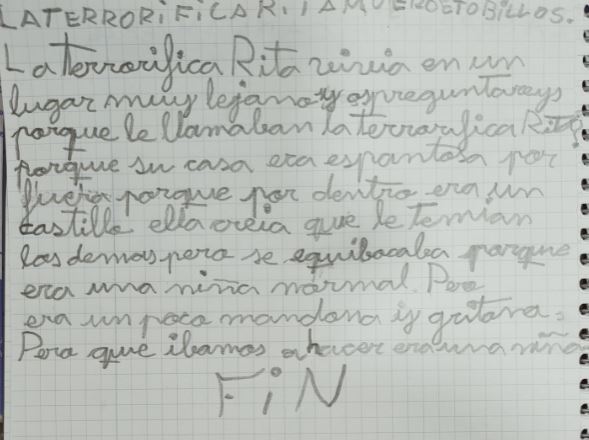 LATERRORiFiCA RiTAMUERDETOBiLLOS.
La Terrorifica Rita vivia en un
lugar muy lejano y os preguntareys
porque le llamaban la terrorifica Rita?
porque su casa era espantosa por
fuera porque por dentro era un
castillo ella creia que le temian
los demas pero se equibocaba porque
era una niña normal. Pero
era un poco mandona y gritona.
Pero que ibamos a hacer era una niña
FiN